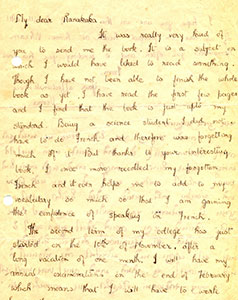 My dear Ranakaka
It was really very kind of
you to send me the book. It is a subject on
which I would have liked to read something.
Though I have not been able to finish the whole
book as yet, I have read the first few pages
and I find that the book is just upto my
standard. Being a science student, I did not
have to do French and therefore was forgetting
much of it. But thanks to your interesting
book, I once more recollect my forgotten
French and it even helps me to add to my
vocabulary so much so that I am gaining
the confidence of speaking in French.
The second term of my college has just
started on the 10th of November, after a
long vacation of one month. I will have my
annual examinations in the end of February
which means that I will have to work